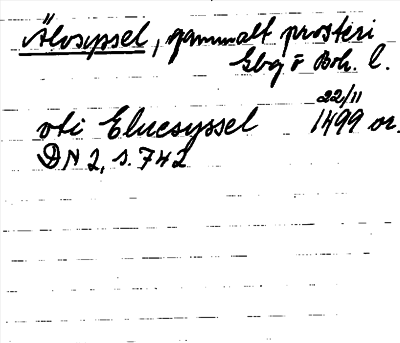 Älvsyssel, gammalt prosteri
Gbg o Boh. l.
vti Eluesyssel 22/11 1499 or.
DN 2, s. 742